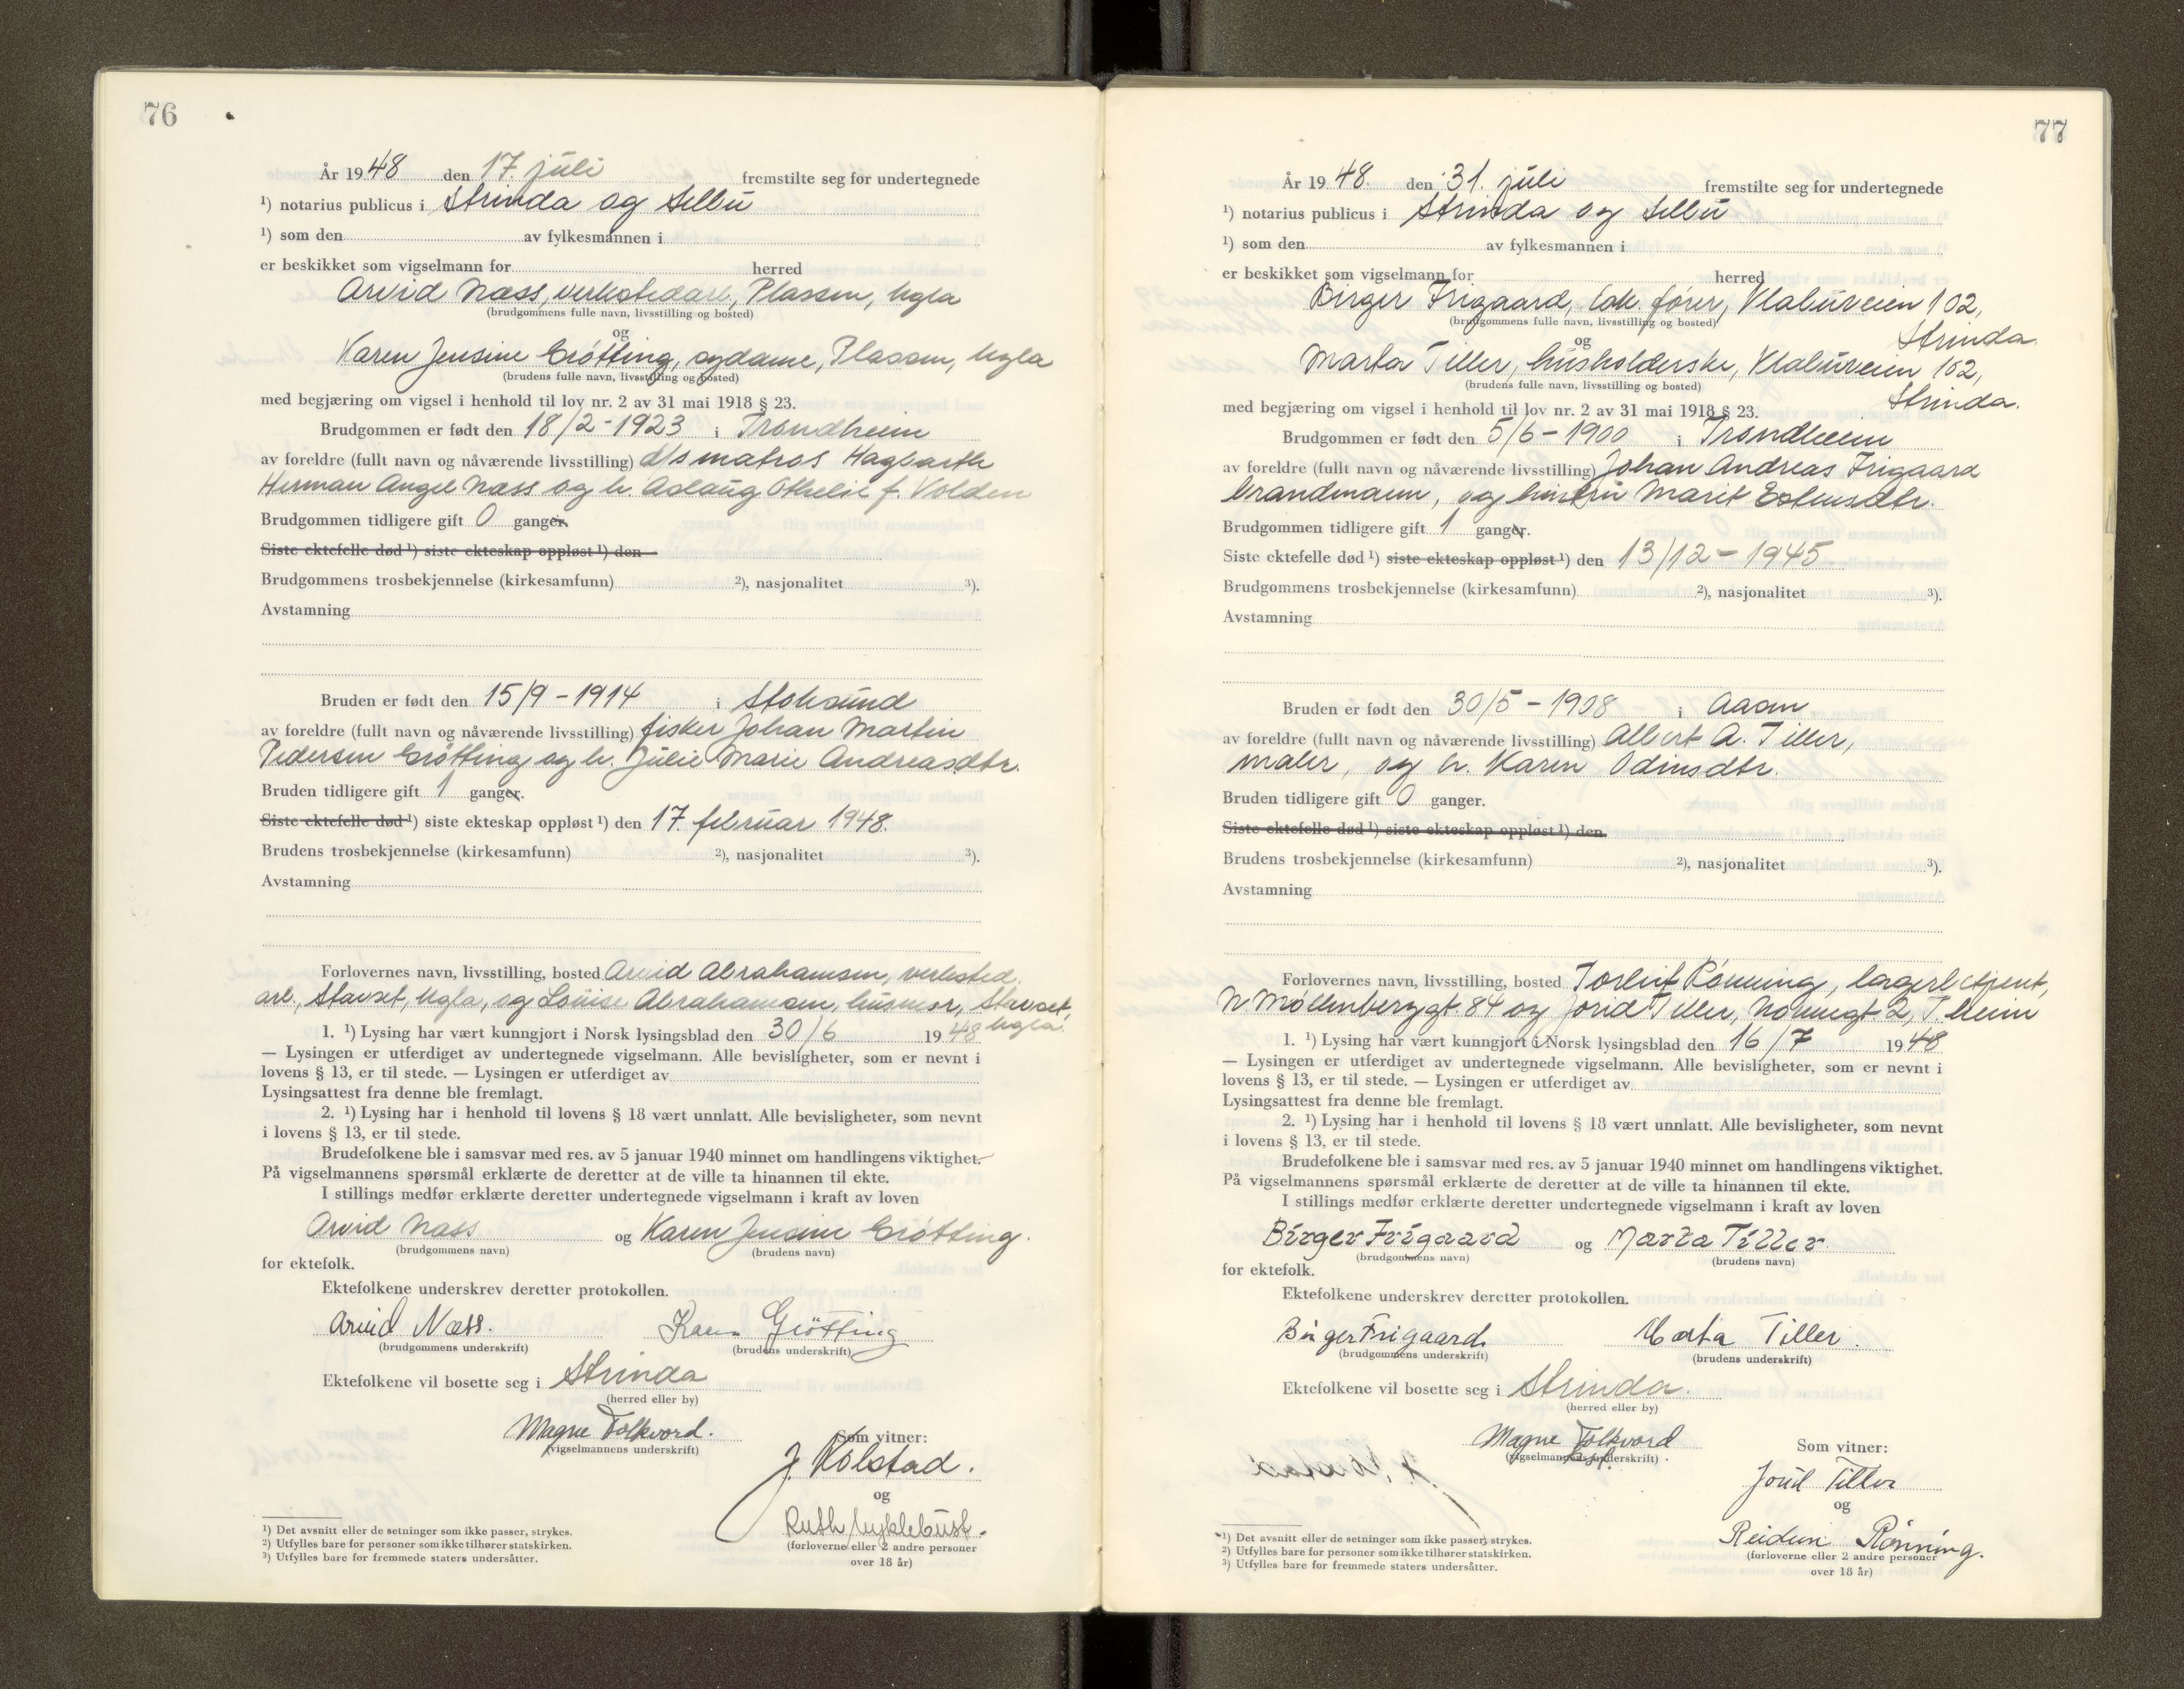 76
År 1948 den 17. juli fremstilte seg for undertegnede
¹) notarius publicus i Strinda og Selbu
¹) som den av fylkesmannen i
er beskikket som vigselmann for herred
Arvid Næss, verkstedarb., Plassen, Ugla
(brudgommens fulle navn, livsstilling og bosted)
og
Karen Jensine Grøtting, sydame, Plassen, Ugla
(brudens fulle navn, livsstilling og bosted)
med begjæring om vigsel i henhold til lov nr. 2 av 31 mai 1918 § 23.
Brudgommen er født den 18/2-1923 i Trondheim
av foreldre (fullt navn og nåværende livsstilling) d/s matros Hagbarth
Herman Angel Næss og h. Aslaug Othelie f. Volden
Brudgommen tidligere gift 0 ganger.
Siste ektefelle død ¹) siste ekteskap oppløst ¹) den
Brudgommens trosbekjennelse (kirkesamfunn) ²), nasjonalitet ³).
Avstamning
Bruden er født den 15/9-1914 i Stoksund
av foreldre (fullt navn og nåværende livsstilling) fisker Johan Martin
Pedersen Grøtting og h. Julie Marie Andreasdtr.
Bruden tidligere gift 1 ganger.
Siste ektefelle død ¹) siste ekteskap oppløst ¹) den 17. februar 1948.
Brudens trosbekjennelse (kirkesamfunn) ²), nasjonalitet ³).
Avstamning
Forlovernes navn, livsstilling, bosted Arvid Abrahamsen, verksted.
arb., Stavset, Ugla, og Louise Abrahamsen, husmor, Stavset,
Ugla.
1. ¹) Lysing har vært kunngjort i Norsk lysingsblad den 30/6 1948
— Lysingen er utferdiget av undertegnede vigselmann. Alle bevisligheter, som er nevnt i
lovens § 13, er til stede. — Lysingen er utferdiget av
Lysingsattest fra denne ble fremlagt.
2. ¹) Lysing har i henhold til lovens § 18 vært unnlatt. Alle bevisligheter, som nevnt
i lovens § 13, er til stede.
Brudefolkene ble i samsvar med res. av 5 januar 1940 minnet om handlingens viktighet.
På vigselmannens spørsmål erklærte de deretter at de ville ta hinannen til ekte.
I stillings medfør erklærte deretter undertegnede vigselmann i kraft av loven
Arvid Næss og Karen Jensine Grøtting.
(brudgommens navn) (brudens navn)
for ektefolk.
Ektefolkene underskrev deretter protokollen.
Arvid Næss. Karen Grøtting
(brudgommens underskrift) (brudens underskrift)
Ektefolkene vil bosette seg i Strinda
(herred eller by)
Magne Folkvord.
(vigselmannens underskrift)
Som vitner:
J. Kolstad.
og
Ruth Myklebust.
(forloverne eller 2 andre personer
over 18 år)
¹) Det avsnitt eller de setninger som ikke passer, strykes.
²) Utfylles bare for personer som ikke tilhører statskirken.
³) Utfylles bare for fremmede staters undersåtter.
77
År 1948. den 31. juli fremstilte seg for undertegnede
¹) notarius publicus i Strinda og Selbu
¹) som den av fylkesmannen i
er beskikket som vigselmann for herred
Birger Frigaard, lok. fører, Klæbuveien 102,
Strinda.
(brudgommens fulle navn, livsstilling og bosted)
og
Marta Tiller, husholderske, Klæbuveien 102,
Strinda.
(brudens fulle navn, livsstilling og bosted)
med begjæring om vigsel i henhold til lov nr. 2 av 31 mai 1918 § 23.
Brudgommen er født den 5/6-1900 i Trondheim
av foreldre (fullt navn og nåværende livsstilling) Johan Andreas Frigaard
brandmann, og hustru Marit Estensdtr.
Brudgommen tidligere gift 1 ganger.
Siste ektefelle død ¹) siste ekteskap oppløst ¹) den 13/12-1945
Brudgommens trosbekjennelse (kirkesamfunn) ²), nasjonalitet ³).
Avstamning
Bruden er født den 30/5-1908 i Aasen
av foreldre (fullt navn og nåværende livsstilling) Albert A. Tiller,
maler, og h. Karen Odinsdtr.
Bruden tidligere gift 0 ganger.
Siste ektefelle død ¹) siste ekteskap oppløst ¹) den
Brudens trosbekjennelse (kirkesamfunn) ²), nasjonalitet ³).
Avstamning
Forlovernes navn, livsstilling, bosted Torleif Rønning, lagerbetjent,
N Møllenberggt. 84 og Jorid Tiller, 2, T.heim
1. ¹) Lysing har vært kunngjort i Norsk lysingsblad den 16/7 1948
— Lysingen er utferdiget av undertegnede vigselmann. Alle bevisligheter, som er nevnt i
lovens § 13, er til stede. — Lysingen er utferdiget av
Lysingsattest fra denne ble fremlagt.
2. ¹) Lysing har i henhold til lovens § 18 vært unnlatt. Alle bevisligheter, som nevnt
i lovens § 13, er til stede.
Brudefolkene ble i samsvar med res. av 5 januar 1940 minnet om handlingens viktighet.
På vigselmannens spørsmål erklærte de deretter at de ville ta hinannen til ekte.
I stillings medfør erklærte deretter undertegnede vigselmann i kraft av loven
Birger Frigaard og Marta Tiller.
(brudgommens navn) (brudens navn)
for ektefolk.
Ektefolkene underskrev deretter protokollen.
Birger Frigaard Marta Tiller.
(brudgommens underskrift) (brudens underskrift)
Ektefolkene vil bosette seg i Strinda.
(herred eller by)
Magne Folkvord
(vigselmannens underskrift)
Som vitner:
Jorid Tiller
og
Reidun Rønning.
(forloverne eller 2 andre personer
over 18 år)
¹) Det avsnitt eller de setninger som ikke passer, strykes.
²) Utfylles bare for personer som ikke tilhører statskirken.
³) Utfylles bare for fremmede staters undersåtter.